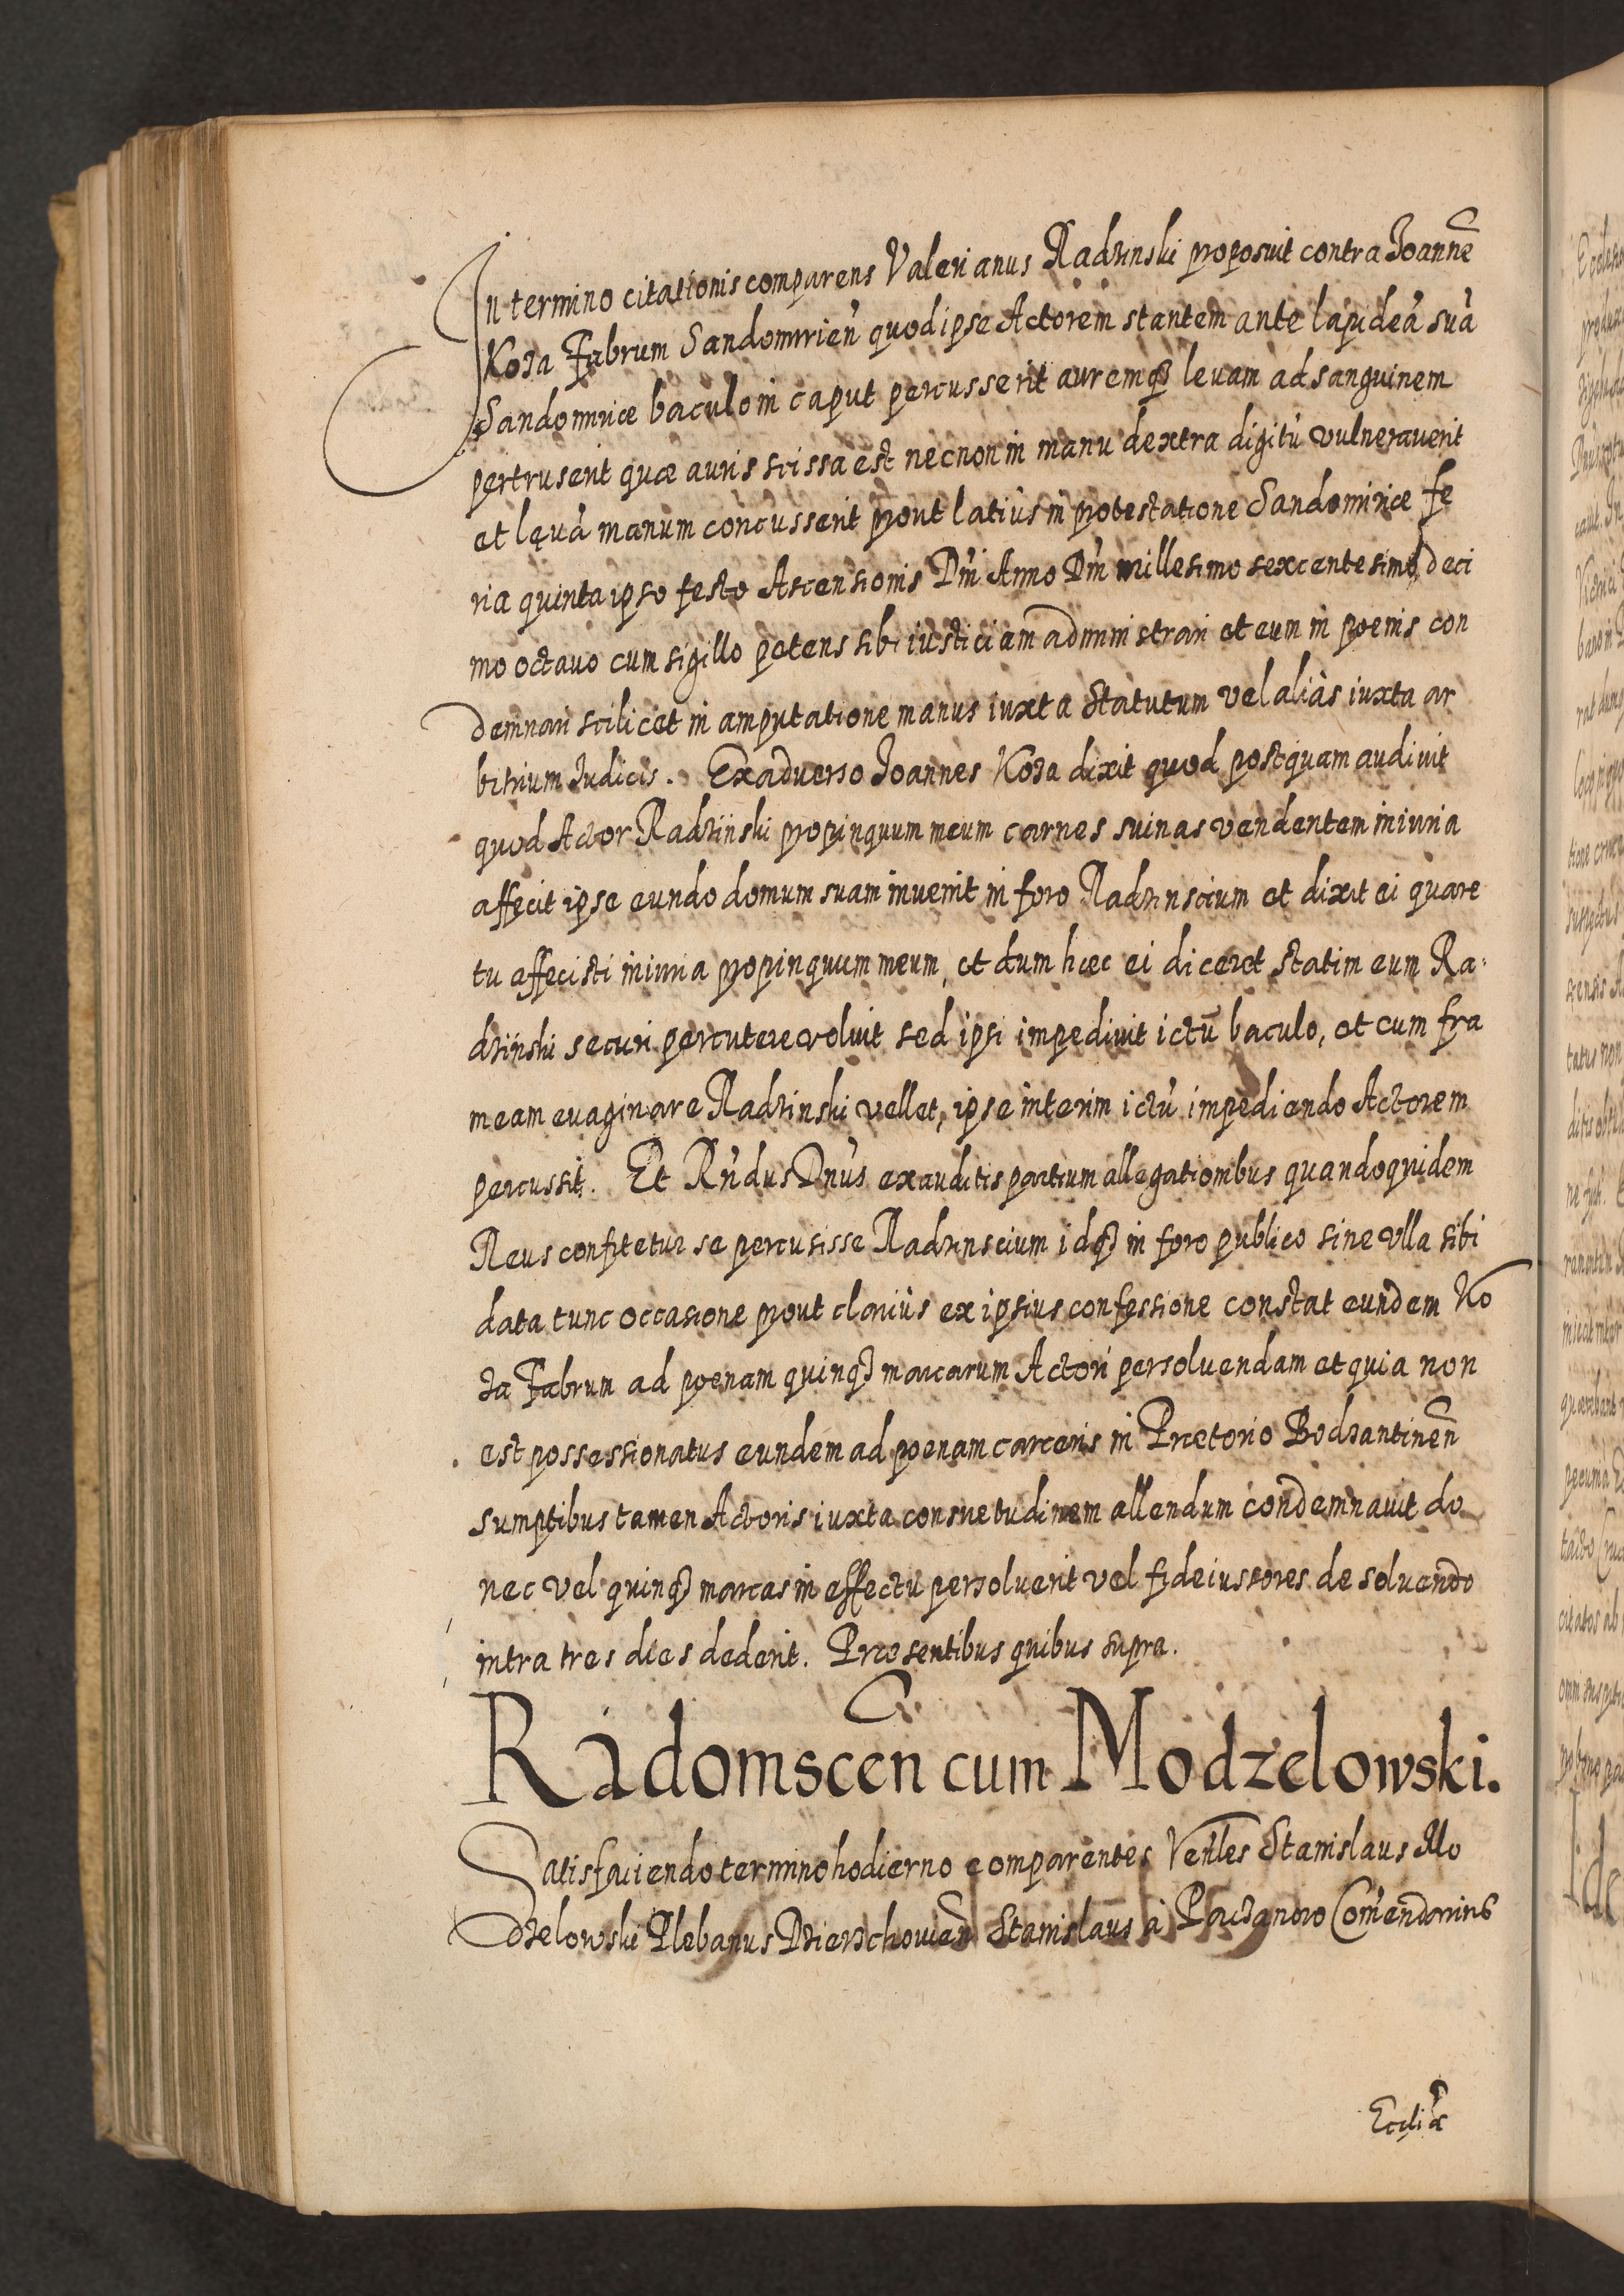 In termino citationis comparens Valerianus Radzinski proposuit contra Joannē
Koza Fabrum Sandomirień quod ipse Actorem stantem ante lapideā suā
Sandomiriæ baculo in caput percusserit auremq3 levam ad sanguinem
pertruserit quæ auris scissa est necnon in manu dextra digitū vulneraverit
et lęvā manum concusserit prout latiùs in protestatione Sandomiriæ fe
ria quinta ipso festo Ascensionis Dñi Anno Dñi millesimo sexcentesimo deci
mo octauo cum sigillo petens sibi iusticiam administrari et eum in poenis con
demnari scilicet in amputatione manus iuxta statutum vel aliàs iuxta ar
bitrium Judicis. Exaduerso Joannes Koza dixit quod postquam audiuit
quod Actor Radziński propinquum meum carnes suinas vendentem iniuria
affecit ipse eundo domum suam inuenit in foro Radzinscium et dixit ei quare
tu affecisti iniuria propinquum meum, et dum hæc ei diceret statim eum Ra-
dziński securi percutere voluit sed ipsi impediuit ictū baculo, et cum fra
meam euaginare Radzinski vellet, ipse interim ictū impediendo Actorem
percussit. Et Rńdus Dńus exauditis partium allegationibus quandoquidem
Reus confitetur se percusisse Radzinscium idq3 in foro publico sine vlla sibi
data tunc occasione prout clariùs ex ipsius confessione constat eundem Ko
za Fabrum ad poenam quinq3 marcarum Actori persoluendam et quia non
est possessionatus eundem ad poenam carceris in Prætorio Bodzantineñ
sumptibus tamen Actoris iuxta consuetudinem allendum condemnauit do
nec vel quinq3 marcas in effectu persoluerit vel fideiussores de soluendo
intra tres dies dederit. Præsentibus quibus supra.
Radomsceñ cum Modzelowski.
Satisfaciendo termino hodierno comparentes Veńles Stanislaus Mo
dzelowski Plebanus Dzierzchowieñ Stanislaus à Paczanow Comendarius
Eccliæ